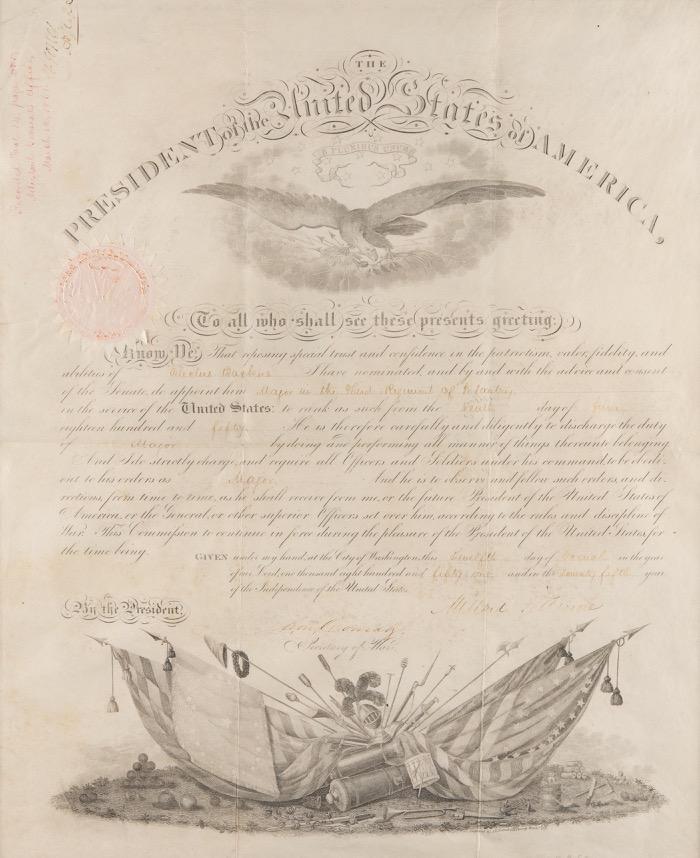 THE
PRESIDENT of the United States of AMERICA,
E PLURIBUS UNUM
To all who shall see these presents greeting:
Know Ye, That reposing special trust and confidence in the patriotism, valor, fidelity, and
abilities of Electus Backus I have nominated, and by and with the advice and consent
of the Senate, do appoint him Major in the Third Regiment of Infantry,
in the service of the United States: to rank as such from the day of June
eighteen hundred and fifty He is therefore carefully and diligently to discharge the duty
of Major by doing and performing all manner of things thereunto belonging.
And I do strictly charge, and require all Officers and Soldiers under his command, to be obedi-
ent to his orders as Major And he is to observe and follow such orders, and di-
rections, from time to time, as he shall receive from me, or the future President of the United States of
America, or the General, or other superior Officers set over him, according to the rules and discipline of
War. This Commission to continue in force during the pleasure of the President of the United States for
the time being.
GIVEN under my hand, at the City of Washington, this twelfth day of March in the year
of our Lord, one thousand eight hundred and fifty one and in the Seventy fifth year
of the Independence of the United States.
By the President,
Millard Fillmore
Secretary of War.